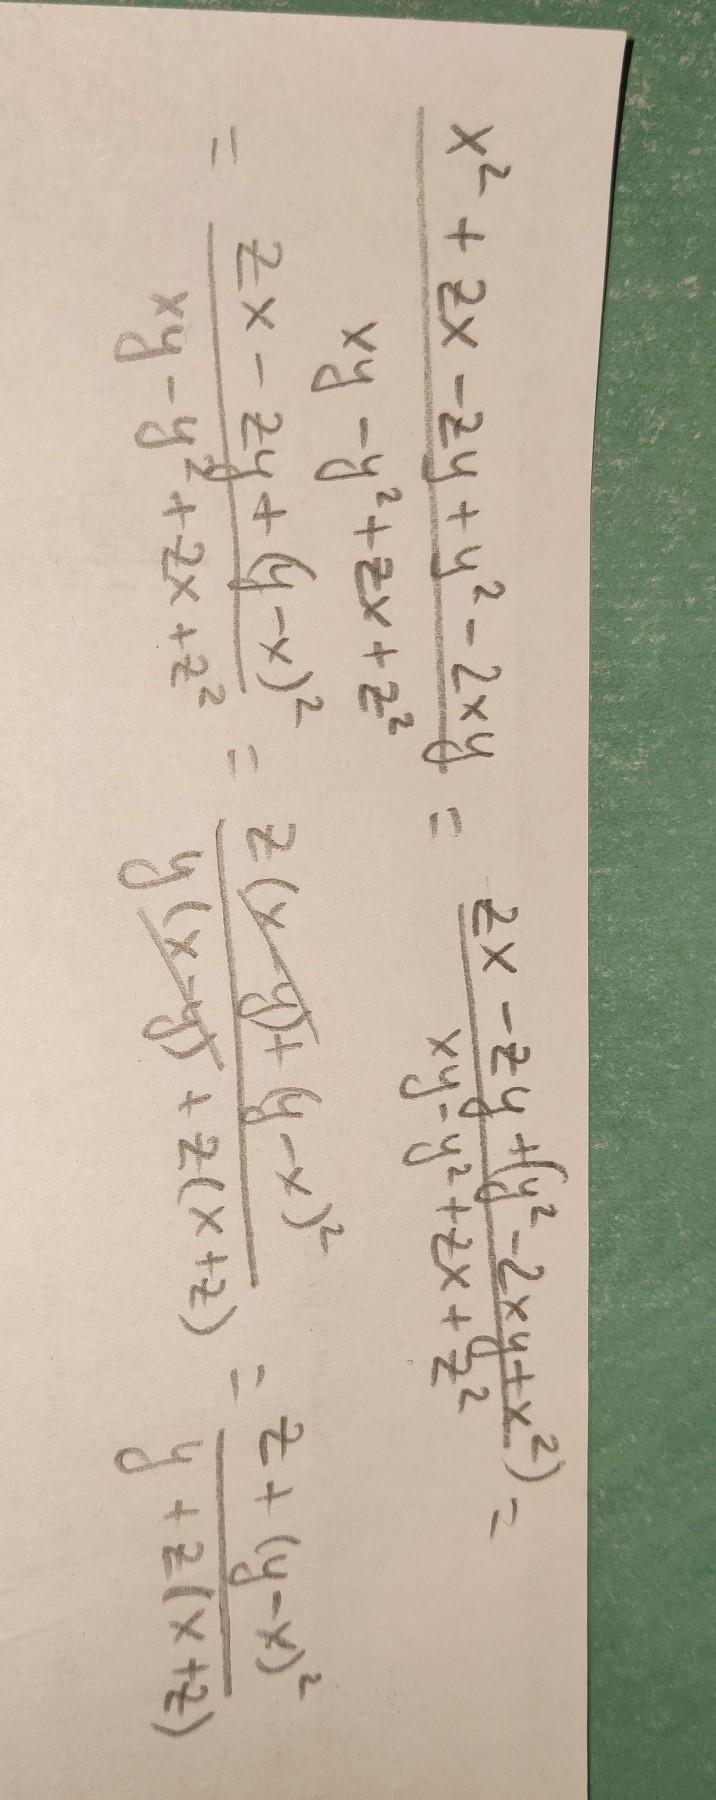 x² + zx - zy + y² - 2xy / xy - y² + zx + z² = zx - zy + (y² - 2xy + x²) / xy - y² + zx + z² =
= zx - zy + (y - x)² / xy - y² + zx + z² = z(x - y) + (y - x)² / y(x - y) + z(x + z) = z + (y - x)² / y + z(x + z)